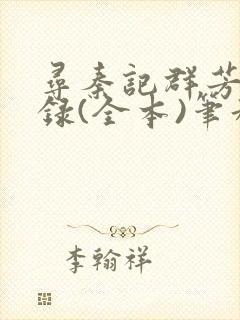 尋秦記群芳
錄(全本)筆
李翰祥